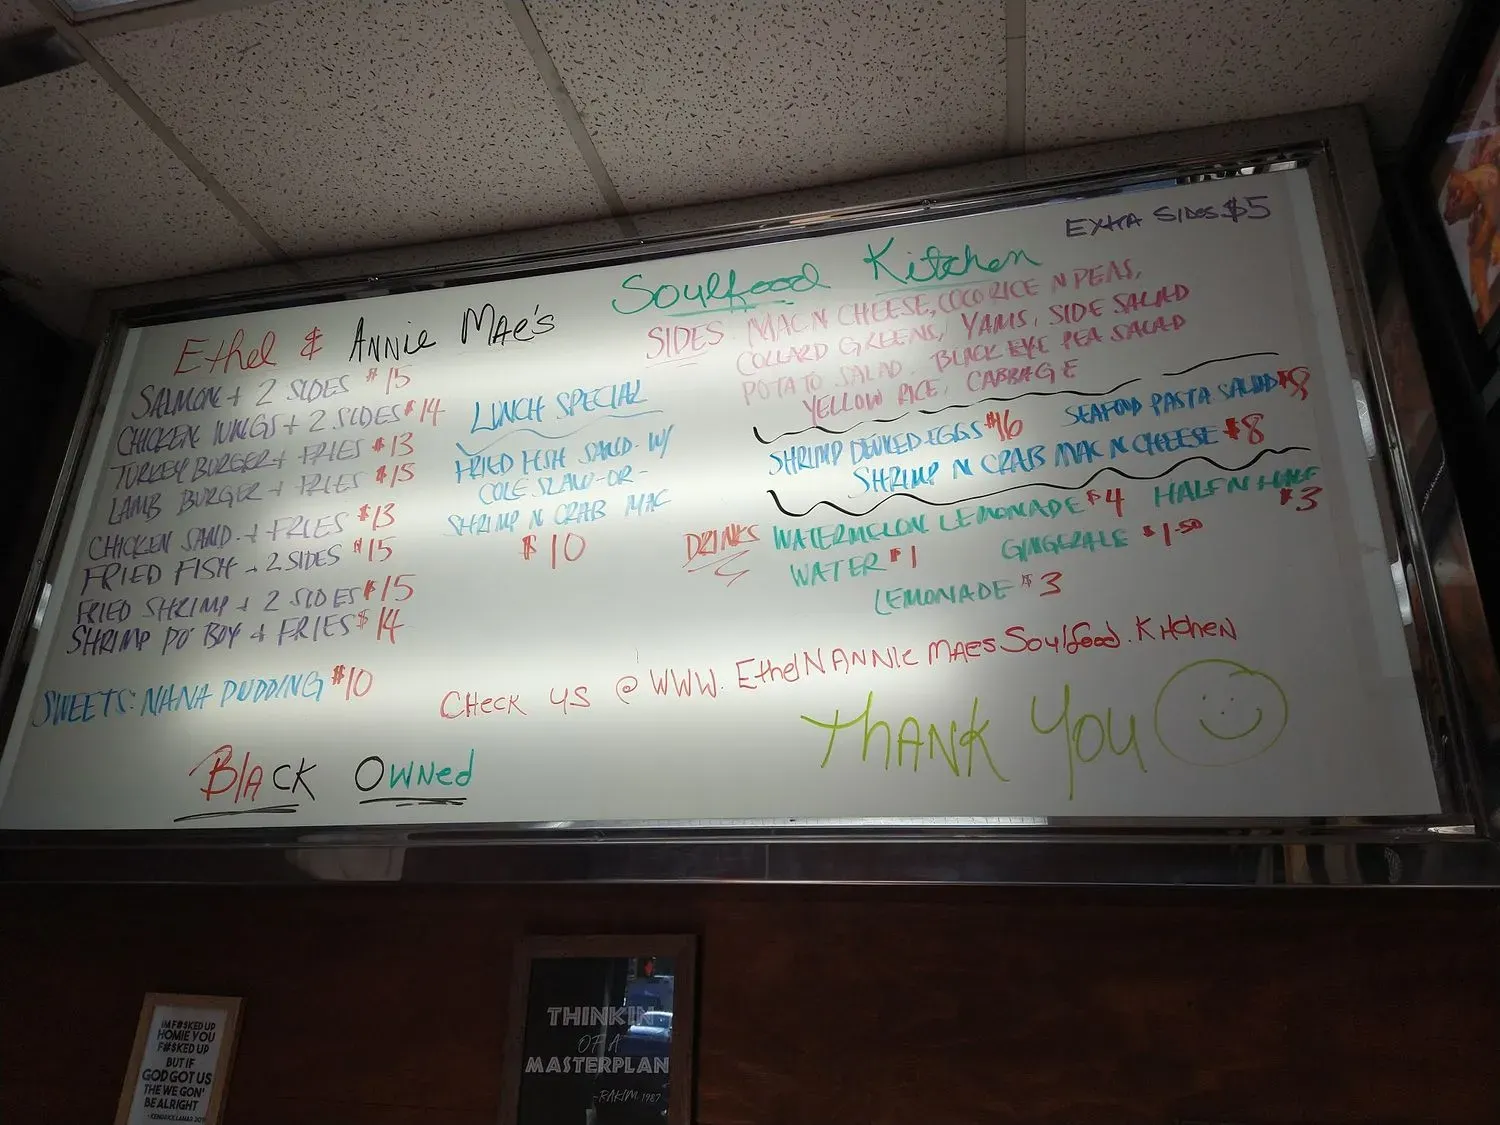 Ethel & ANNie MAe's Soulfood Kitchen
EXTRA SIDES $5
SALMON + 2 SIDES $15
CHICKEN WINGS + 2 SIDES $14
TURKEY BURGER + FRIES $13
LAMB BURGER + FRIES $15
CHICKEN SAND. + FRIES $13
FRIED FISH + 2 SIDES $15
FRIED SHRIMP + 2 SIDES $15
SHRIMP PO' BOY + FRIES $14
SWEETS: NANA PUDDING $10
LUNCH SPECIAL
FRIED FISH SAND. W/
COLE SLAW -OR-
SHRIMP N CRAB MAC
$10
SIDES: MAC N CHEESE, COCO RICE N PEAS,
COLLARD GREENS, YAMS, SIDE SALAD
POTATO SALAD, BLACK EYE PEA SALAD
YELLOW RICE, CABBAGE
SHRIMP DEVILED EGGS $16 SEAFOOD PASTA SALAD $8
SHRIMP N CRAB MAC N CHEESE $8
DRINKS WATERMELON LEMONADE $4 HALF N HALF $3
WATER $1 GINGERALE $1.50
LEMONADE $3
CHeck us @ WWW.EthelNANNieMAesSoulfood.KitcheN
THANK YOU
BlAcK OwNed
IM F#$KED UP
HOMIE YOU
F#$KED UP
BUT IF
GOD GOT US
THE WE GON'
BE ALRIGHT
- KENDRICK LAMAR
THINKIN
OF A
MASTERPLAN
-RAKIM, 1987